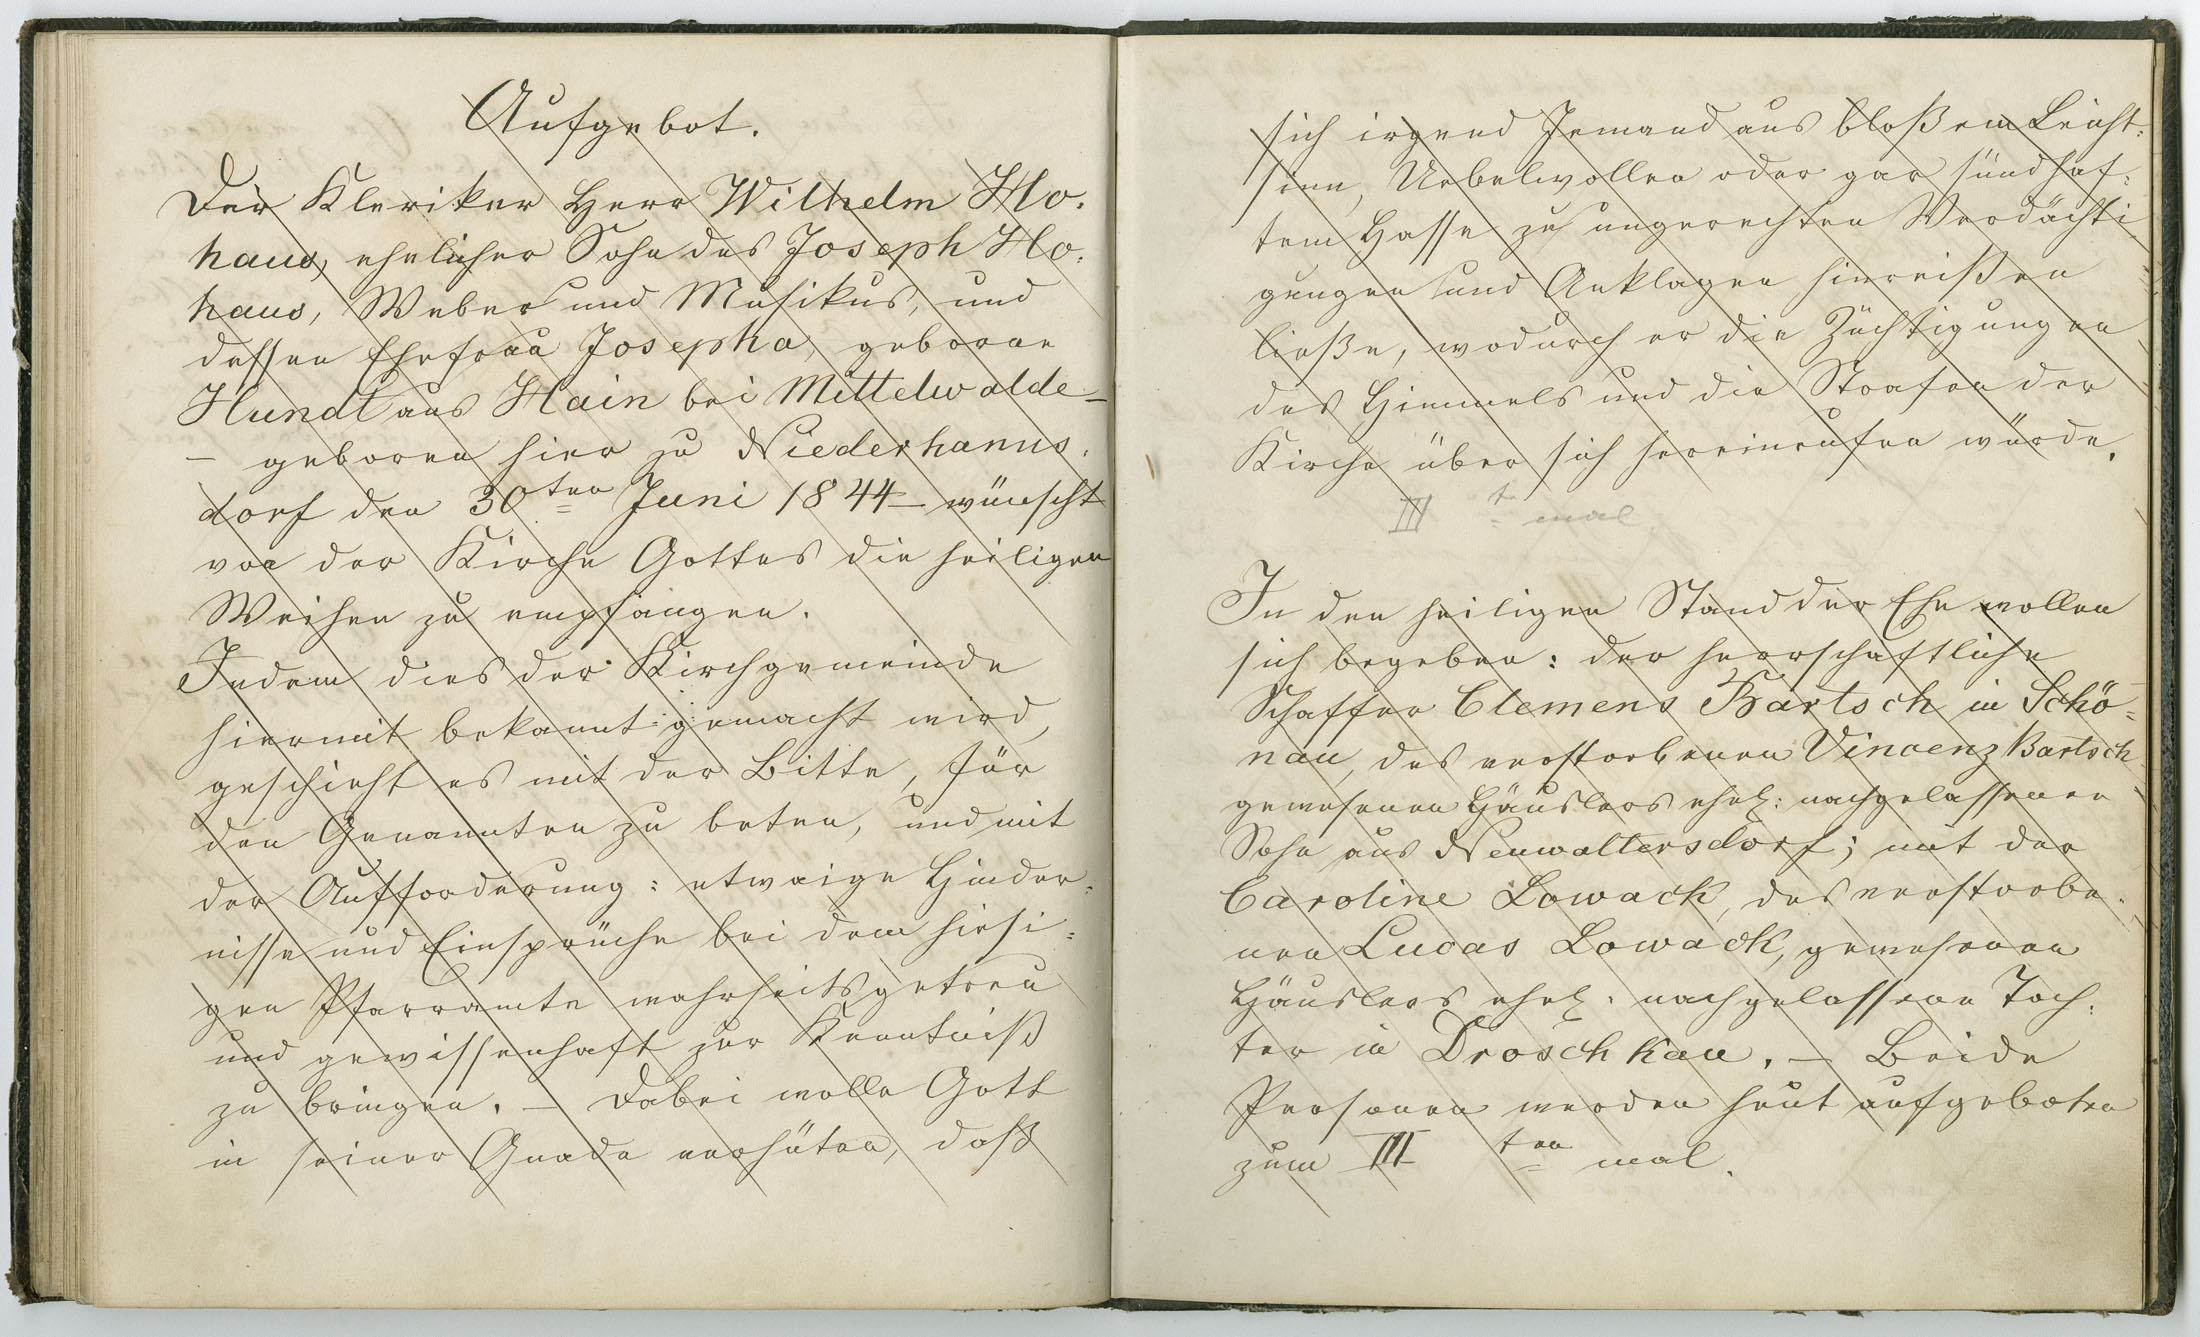 Aufgebot.
Der Kleriker Herr Wilhelm Ho-
haus, ehelicher Sohn des Joseph Ho-
haus, Weber und Musikus, und
dessen Ehefrau Josepha, geborne
Hundt aus Hain bei Mittelwalde –
– geboren hier zu Niederhanns-
dorf den 30ten Juni 1844 – wünscht
von der Kirche Gottes die heiligen
Weihen zu empfangen.
Indem dies der Kirchgemeinde
hiermit bekannt gemacht wird,
geschieht es mit der Bitte, für
den Genannten zu beten, und mit
der Aufforderung: etwaige Hinder=
nisse und Einsprüche bei dem hiesi=
gen Pfarramte wahrheitsgetreu
und gewissenhaft zur Kenntniß
zu bringen. – Dabei wolle Gott
in seiner Gnade verhüten, daß
sich irgend Jemand aus bloßem Leicht=
sinn, Uebelwollen oder gar sündhaf=
tem Hasse zu ungerechten Verdächti
gungen und Anklagen hinreißen
ließe, wodurch er die Züchtigungen
des Himmels und die Strafen der
Kirche über sich hereinrufen würde.
III t mal
In den heiligen Stand der Ehe wollen
sich begeben: der herrschaftliche
Schaffer Clemens Bartsch in Schö=
nau, des verstorbenen Vincenz Bartsch
gewesenen Häuslers ehel: nachgelassener
Sohn aus Neuwaltersdorf; mit der
Caroline Lowack, des verstorbe-
nen Lucas Lowack, gewesenen
Häuslers ehel: nachgelassene Toch-
ter in Droschkau. – Beide
Personen werden heut aufgeboten
zum III ten mal.